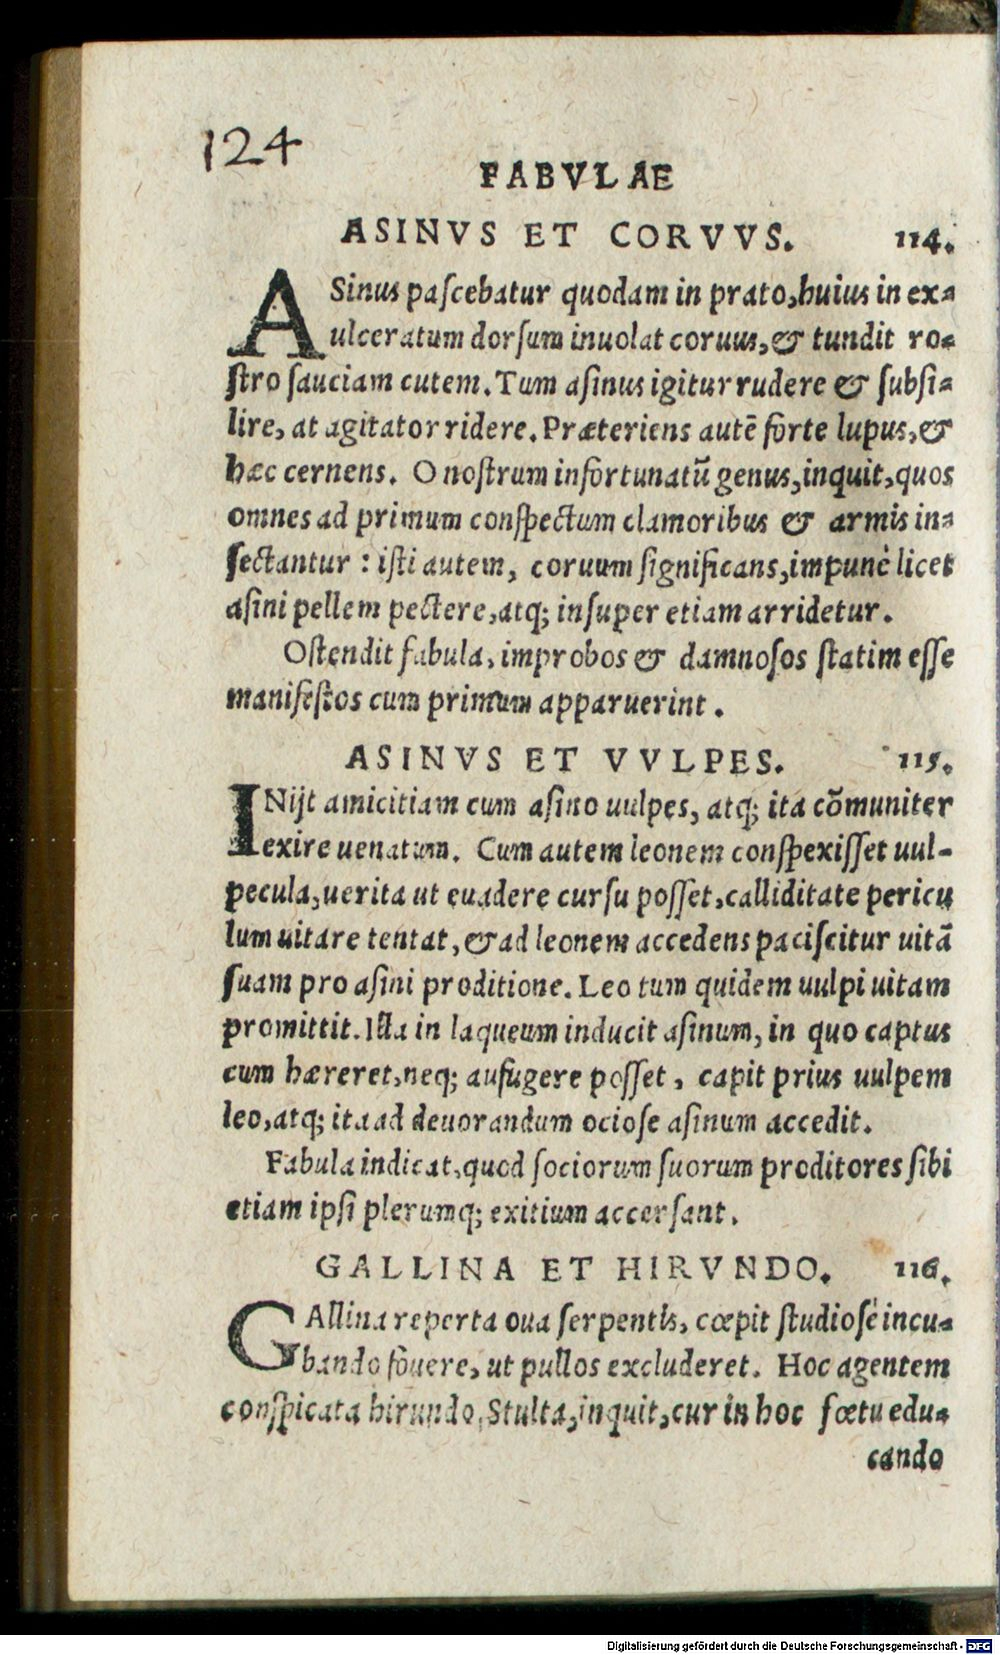 124
FABVLAE
ASINVS ET CORVVS. 114.
ASinus paſcebatur quodam in prato, huius in ex-
ulceratum dorſum inuolat coruus, & tundit ro-
ſtro ſauciam cutem. Tum aſinus igitur rudere & ſubſi-
lire, at agitator ridere. Præteriens autẽ forte lupus, &
hæc cernens. O noſtrum infortunatũ genus, inquit, quos
omnes ad primum conſpectum clamoribus & armis in-
ſectantur : iſti autem, coruum ſignificans, impunè licet
aſini pellem pectere, atq; inſuper etiam arridetur.
Oſtendit fabula, improbos & damnoſos ſtatim eſſe
manifeſtos cum primum apparuerint.
ASINVS ET VVLPES. 115.
INijt amicitiam cum aſino uulpes, atq; ita cõmuniter
exire uenatum. Cum autem leonem conſpexiſſet uul-
pecula, uerita ut euadere curſu poſſet, calliditate pericu
lum uitare tentat, & ad leonem accedens paciſcitur uitã
ſuam pro aſini proditione. Leo tum quidem uulpi uitam
promittit. Illa in laqueum inducit aſinum, in quo captus
cum hæreret, neq; aufugere poſſet, capit prius uulpem
leo, atq; ita ad deuorandum ocioſe aſinum accedit.
Fabula indicat, quod ſociorum ſuorum proditores ſibi
etiam ipſi plerumq; exitium accerſant.
GALLINA ET HIRVNDO. 116.
GAllina reperta oua ſerpentis, cœpit ſtudioſè incu-
bando fouere, ut pullos excluderet. Hoc agentem
conſpicata hirundo, Stulta, inquit, cur in hoc fœtu edu-
cando
Digitalisierung gefördert durch die Deutsche Forschungsgemeinschaft - DFG